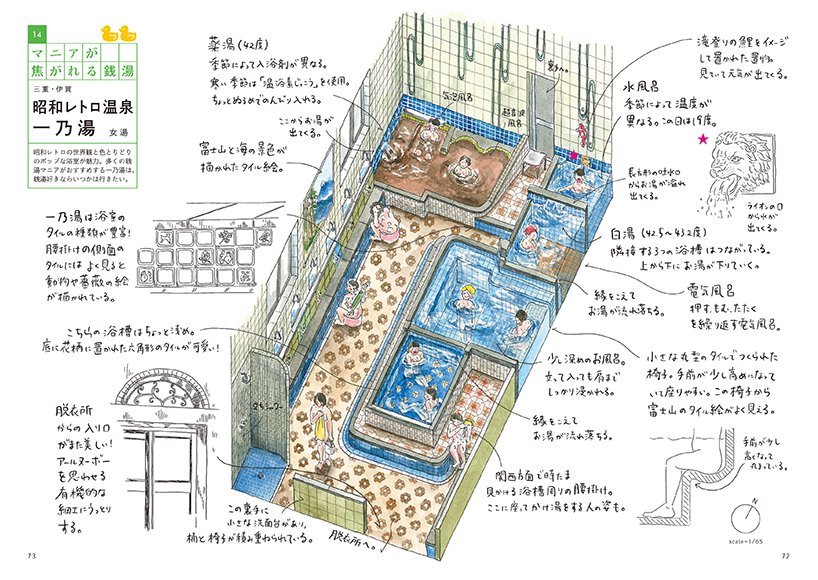 14
マニアが
焦がれる銭湯
三重・伊賀
昭和レトロ温泉
一乃湯 女湯
昭和レトロの世界観と色とりどり
のポップな浴室が魅力。多くの銭
湯マニアがおすすめする一乃湯は、
銭湯好きならいつかは行きたい。
薬湯(42度)
季節によって入浴剤が異なる。
寒い季節は「温浴素じっこう」を使用。
ちょっとぬるめでのんびり入れる。
ここからお湯が
出てくる。
富士山と海の景色が
描かれたタイル絵。
一乃湯は浴室の
タイルの種類が豊富!
腰掛けの側面の
タイルには よく見ると
動物や薔薇の絵
が描かれている。
こちらの浴槽はちょっと浅め。
底に花柄に置かれた六角形のタイルが可愛い!
脱衣所
からの入り口
がまた美しい!
アールヌーボー
を思わせる
有機的な
細工にうっとり
する。
気泡風呂
超音波
風呂
裏へ。
立ちシャワー
滝登りの鯉をイメージ
して置かれた置物。
見ていて元気が出てくる。
水風呂
季節によって温度が
異なる。この日は19度。
長方形の吐水口
からお湯が溢れ
出てくる。
ライオンの口
から水が
出てくる。
白湯(42.5〜43.2度)
隣接する3つの浴槽はつながっている。
上から下にお湯が下りていく。
縁をこえて
お湯が流れ落ちる。
電気風呂
押す、もむ、たたく
を繰り返す電気風呂。
少し深めのお風呂。
立って入っても肩まで
しっかり浸かれる。
小さな丸型のタイルでつくられた
椅子。手前が少し高めになって
いて座りやすい。この椅子から
富士山のタイル絵がよく見える。
縁をこえて
お湯が流れ落ちる。
手前が少し
高くなって
丸まっている。
関西方面で時たま
見かける浴槽周りの腰掛け。
ここに座ってかけ湯をする人の姿も。
この裏手に
小さな洗面台があり、
桶と椅子が積み重ねられている。
脱衣所へ。
N
scale=1/65
73
72